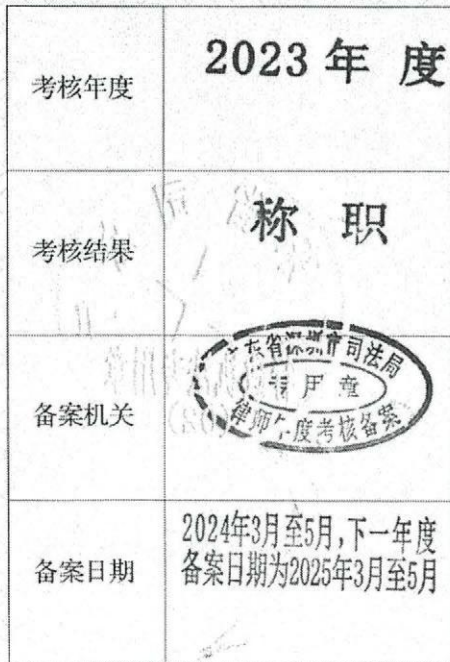 考核年度
2023 年 度
考核结果
称 职
备案机关
广东省深圳市司法局
专用章
律师年度考核备案
备案日期
2024年3月至5月,下一年度
备案日期为2025年3月至5月